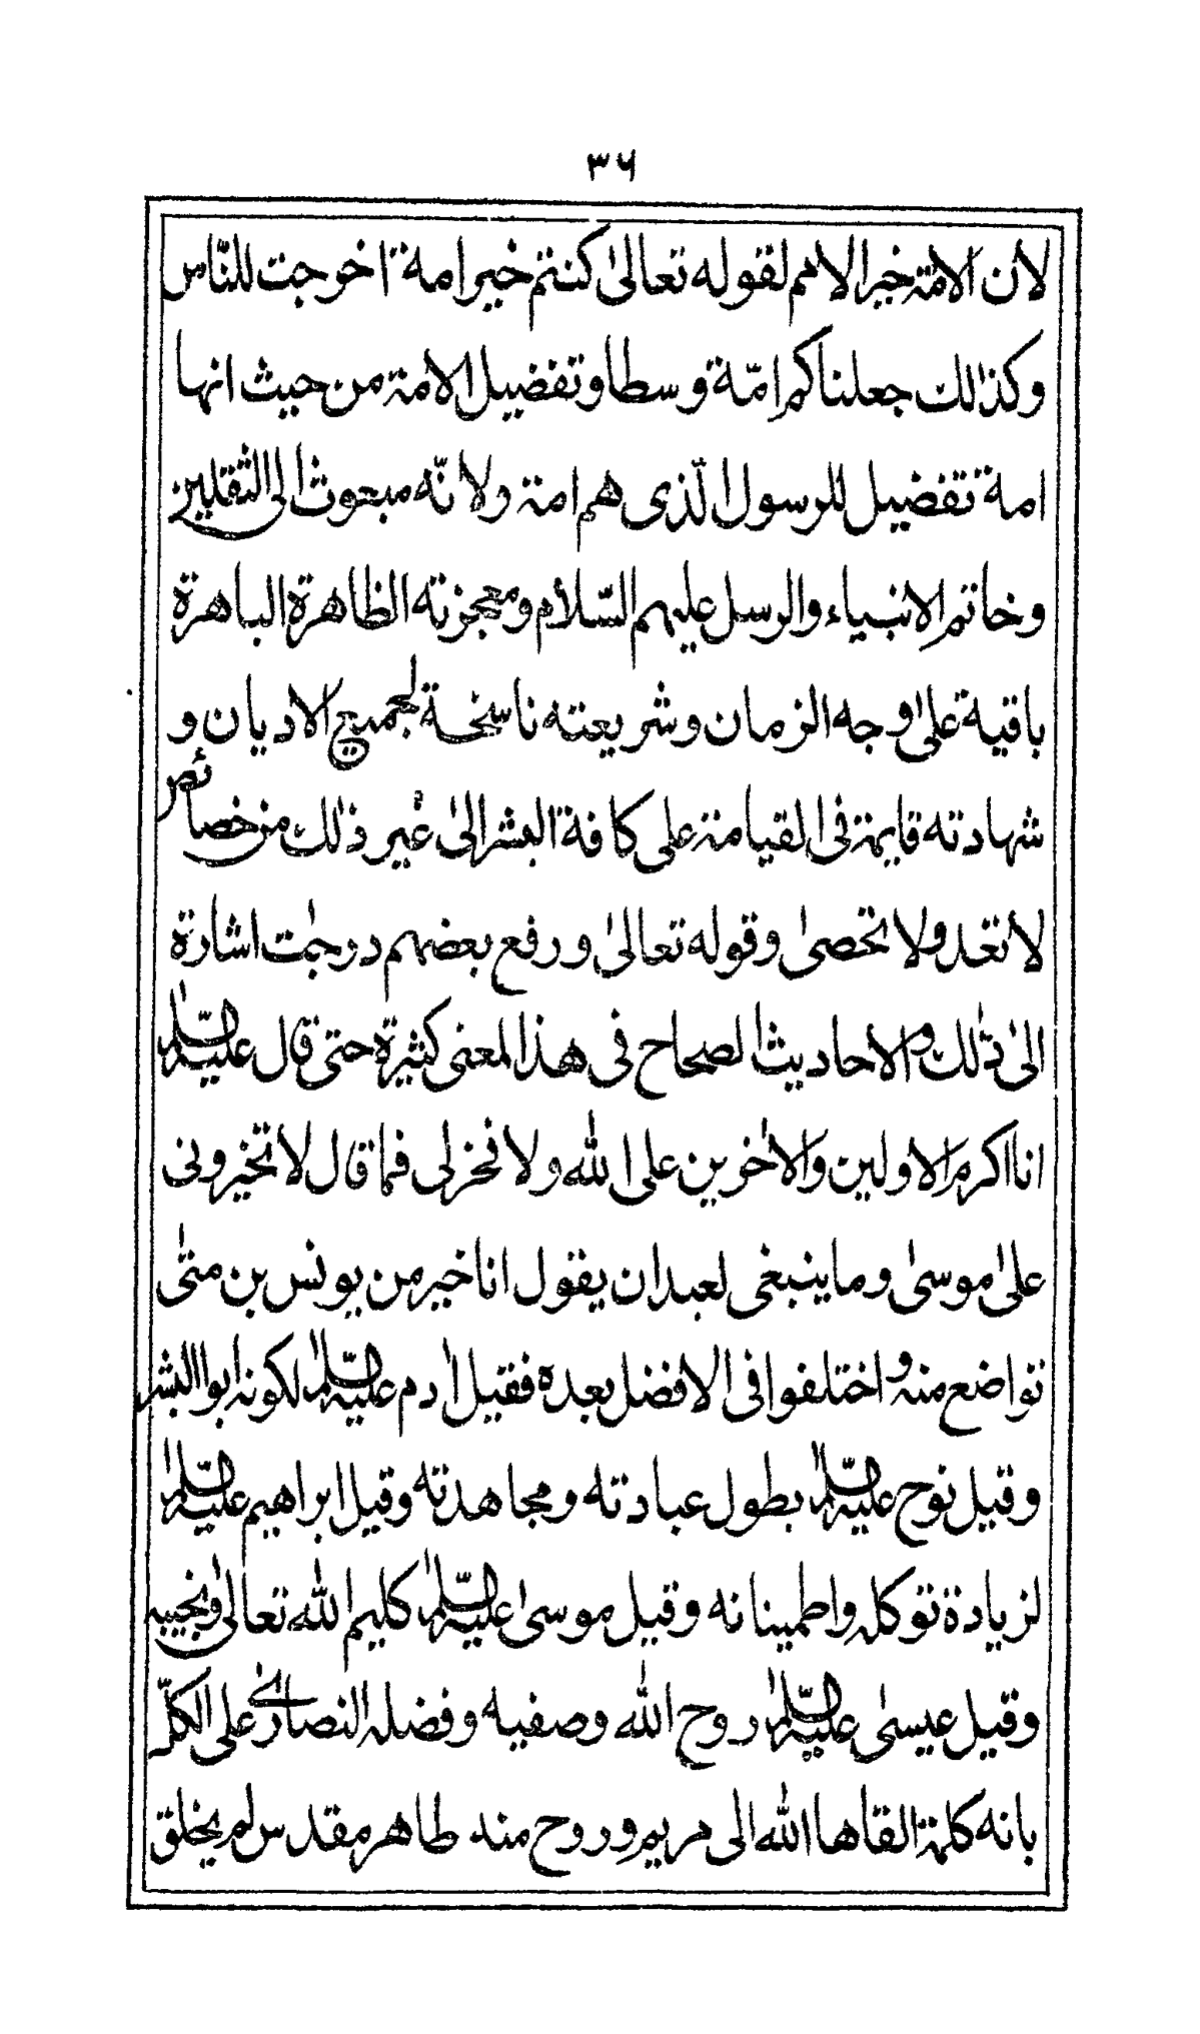 ٣٦
لأن الامّة خير الامم لقوله تعالىٰ كنتم خير امة اخرجت للنّاس
وكذالك جعلناكم امّة وسطا وتفضيل الامة من حيث انها
امة تفضيل للرسول الّذى هم امتة ولانّه مبعوث الى الثقلين
وخاتم الانبياء والرسل عليهم السّلام ومعجزته الظاهرة الباهرة
باقية علىٰ وجه الزمان وشريعته ناسخة لجميع الاديان و
شهادته قايمة فى القيامة على كافة البشر الىٰ غير ذلك من خصائص
لا تعد ولا تحصىٰ وقوله تعالىٰ ورفع بعضهم درجٰت اشارة
الىٰ ذٰلك والاحاديث الصحاح فى هذا المعنى كثيرة حتى قال عليه السّلام
انا اكرم الاولين والاٰخرين على الله ولا فخر لى فما قال لا تخيرونى
علىٰ موسىٰ وما ينبغى لعبد ان يقول انا خير من يونس بن متىٰ
تواضع منه واختلفوا فى الافضل بعده فقيل اٰدم عليه السّلام لكونه ابوا البشر
وقيل نوح عليه السّلام بطول عبادته ومجاهدته وقيل ابراهيم عليه السّلام
لزيادة توكله واطمينانه وقيل موسىٰ عليه السّلام كليم الله تعالىٰ ونجيبه
وقيل عيسىٰ عليه السّلام روح الله وصفيه وفضله النصارىٰ على الكلّ
بانه كلمة القاها الله الى مريم وروح منه طاهر مقدس لم يخلق